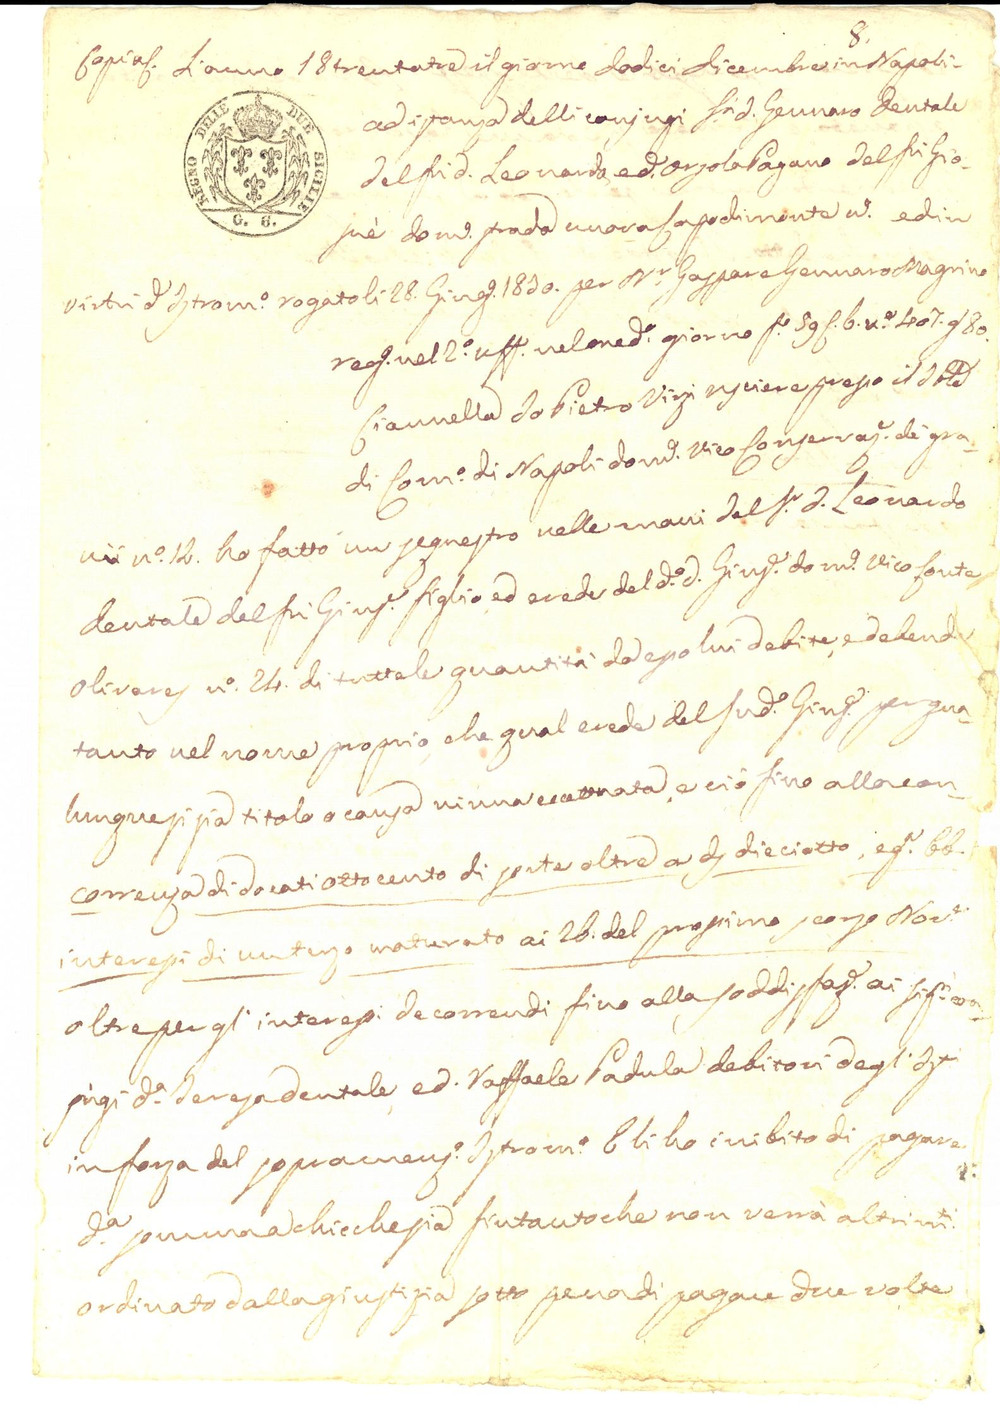 8.
Copia. L'anno 18trentatrè il giorno dodici dicembre in Napoli
REGNO DELLE DUE SICILIE
G. 6.
ad istanza delli conjugi Sr. d. Gennaro Dentale
del fu d. Leonardo, ed. Orsola Pagano del fu Gio-
suè dom. strada nuova Capodimonte n.° ed in
virtù d' Istrom.° rogato li 28. Giug. 1830. per Nr. Gaspare Gennaro Magrino
reg. nel 2.° uff. nel med.° giorno f.° 59 n.° 407. g 80.
Ciannella Io Pietro Usciere presso il
di Com.° di Napoli dom. Vico Conservaz. de' gra-
nii n.° 12. ho fatto un sequestro nelle mani del Sr. d. Leonardo
Dentale del fu Gius. figlio, ed erede del d.° d. Gius. dom. Vico Conte
Olivares n.° 24. di tutte le quantità da esso lui debite, e debende
tanto nel nome proprio, che qual erede del sud.° Gius. per qua-
lunque sisia titolo o causa niuna eccettuata, e ciò fino alla con-
correnza di docati ottocento di sorte oltre a dieciotto, e g. 66.
interessi di un terzo maturato ai 26. del prossimo scorso Nov.e
oltre per gl' interessi decorrendi fino alla soddisfaz. ai con-
jugi d.a Teresa Dentale, e d. Raffaele Padula debitori degl' Ist.
in forza del sopramenz.° Istrom.° E li ho inibito di pagare
d.a somma a chicchesia fintantoche non verrà altrim.ti
ordinato dalla giustizia sotto pena di pagare due volte